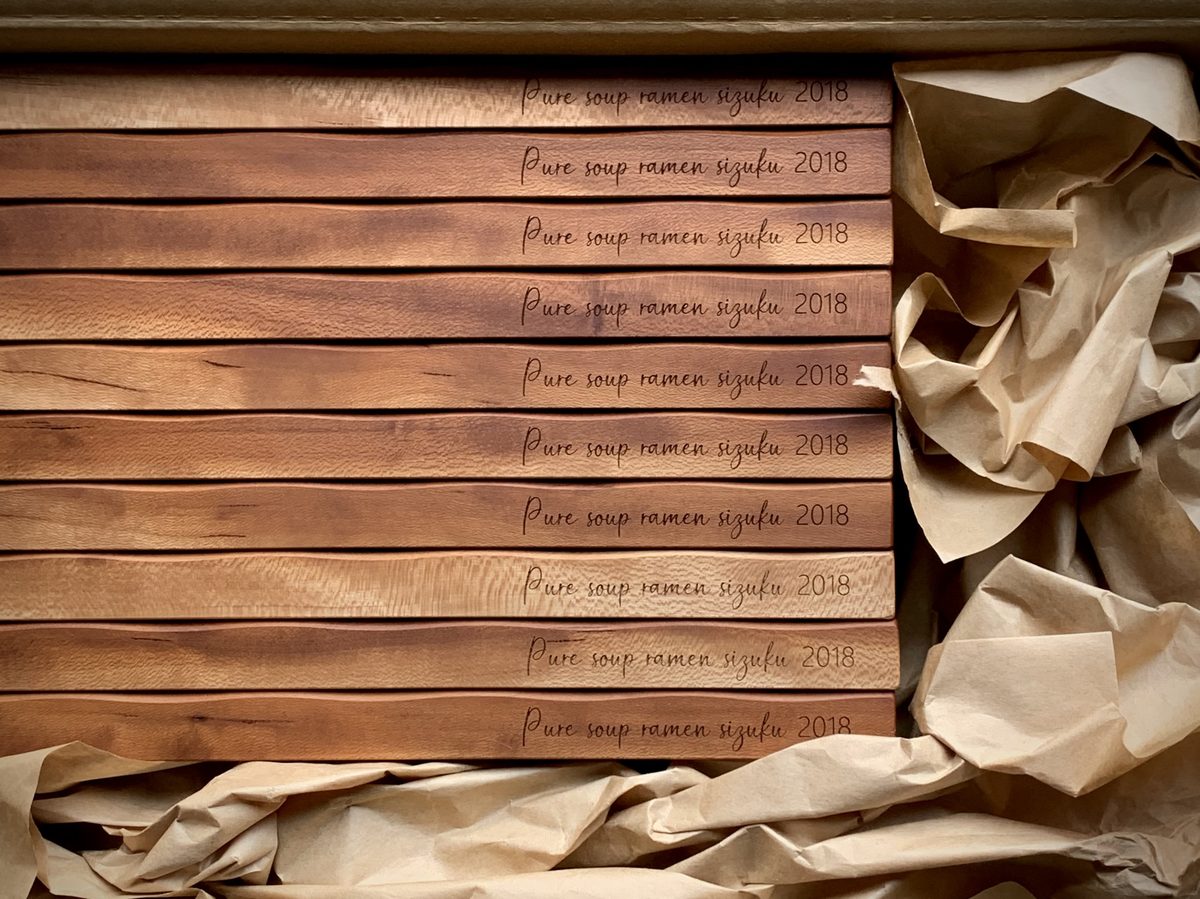 Pure soup ramen sizuku 2018
Pure soup ramen sizuku 2018
Pure soup ramen sizuku 2018
Pure soup ramen sizuku 2018
Pure soup ramen sizuku 2018
Pure soup ramen sizuku 2018
Pure soup ramen sizuku 2018
Pure soup ramen sizuku 2018
Pure soup ramen sizuku 2018
Pure soup ramen sizuku 2018